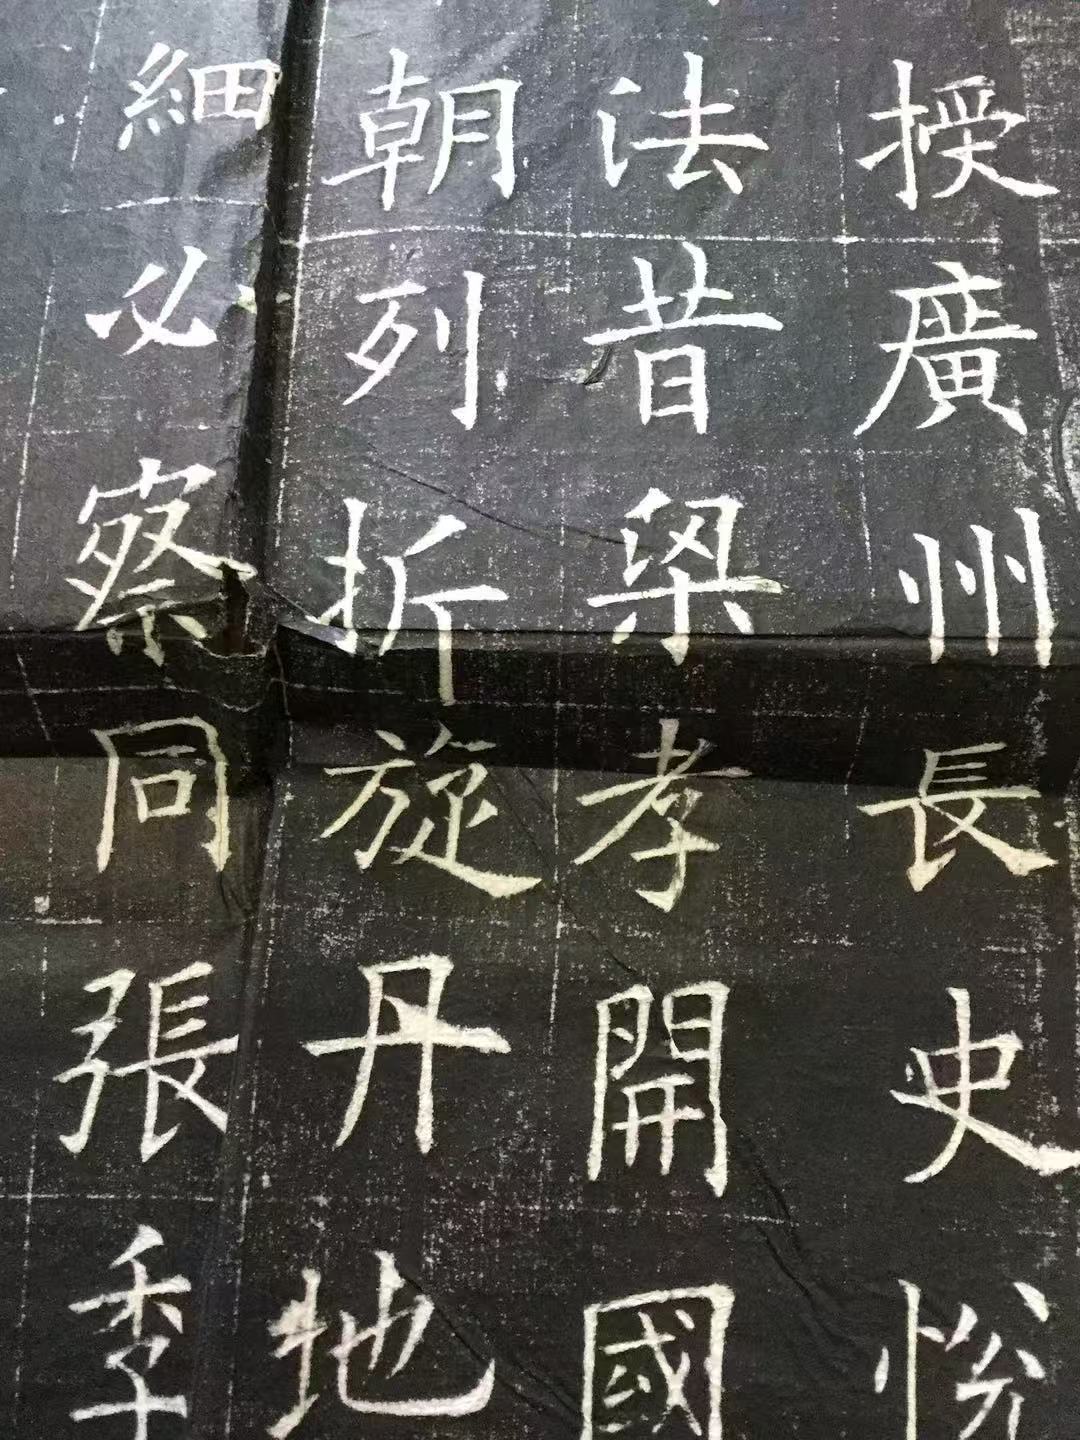 授廣州長史悅
法昔梁孝開國
朝列折旋丹地
細必察同張季